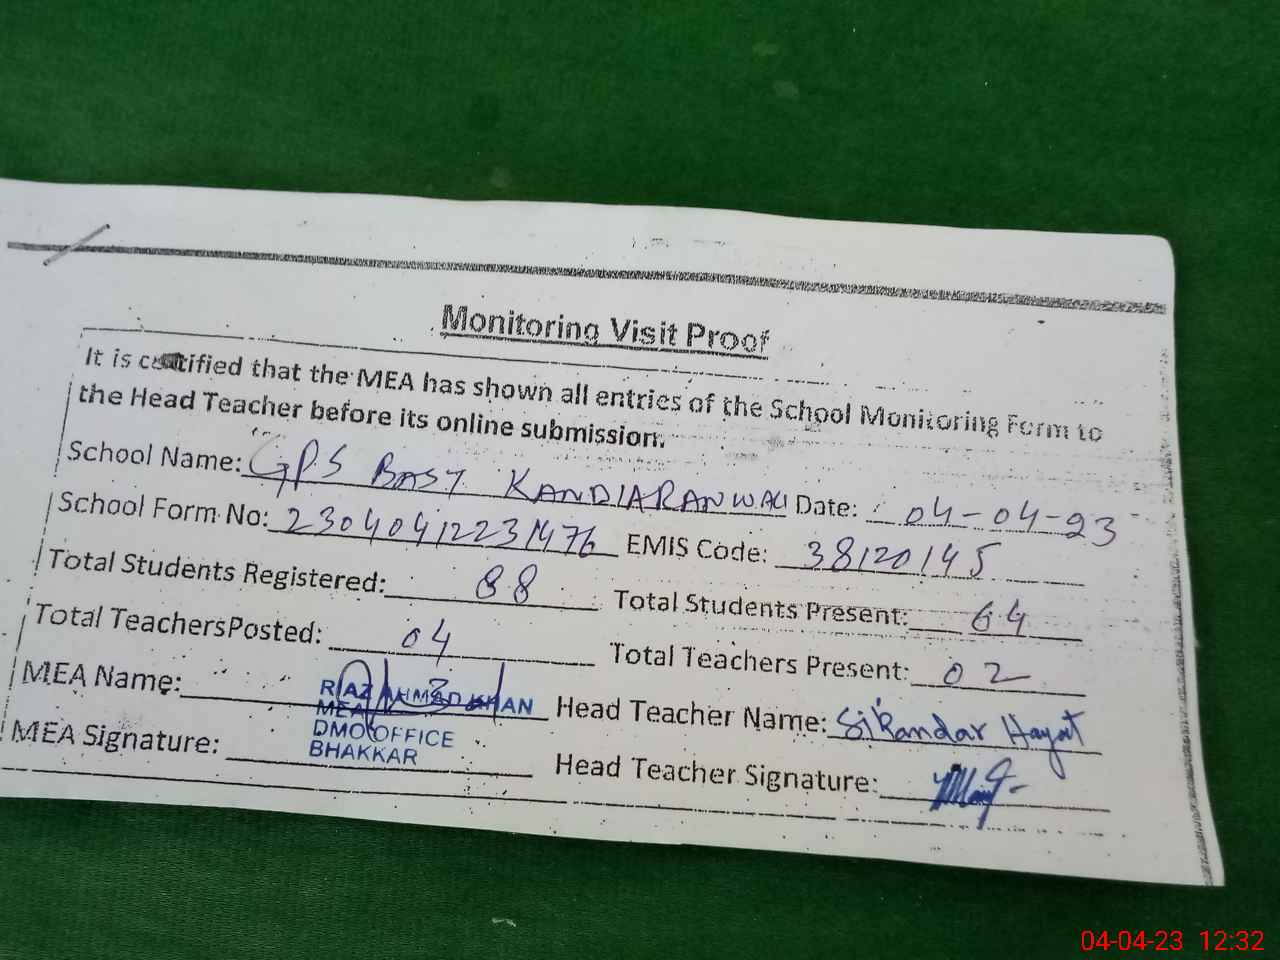 Monitoring Visit Proof
It is certified that the MEA has shown all entries of the School Monitoring Form to
the Head Teacher before its online submission.
School Name: GPS BASTI KANDIARANWALI Date: 04-04-23
School Form No: 23040412231476 EMIS Code: 38120145
Total Students Registered: 88 Total Students Present: 64
Total TeachersPosted: 04 Total Teachers Present: 02
MEA Name: RIAZ AHMAD KHAN Head Teacher Name: Sikandar Hayat
MEA
MEA Signature: DMO OFFICE Head Teacher Signature:
BHAKKAR
04-04-23 12:32